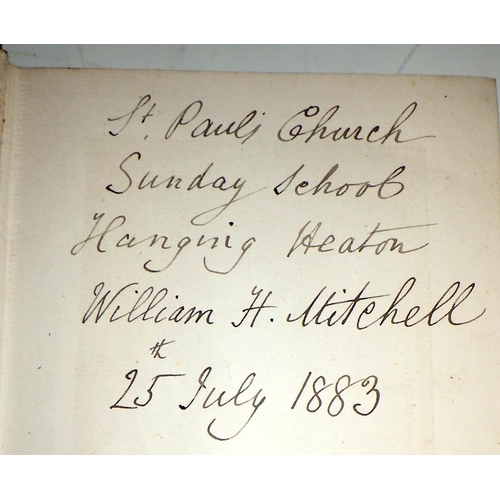 St. Paul's Church
Sunday School
Hanging Heaton
William H. Mitchell
25th July 1883